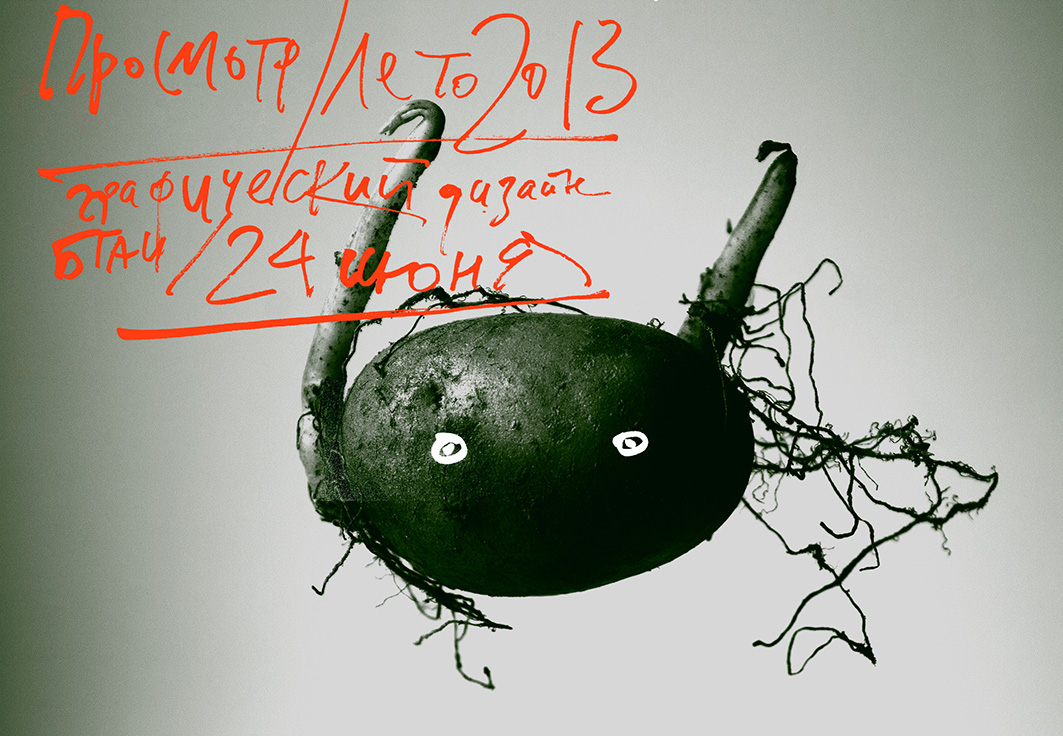 Просмотр/Лето2013
графический дизайн
БГАИ/24 июня